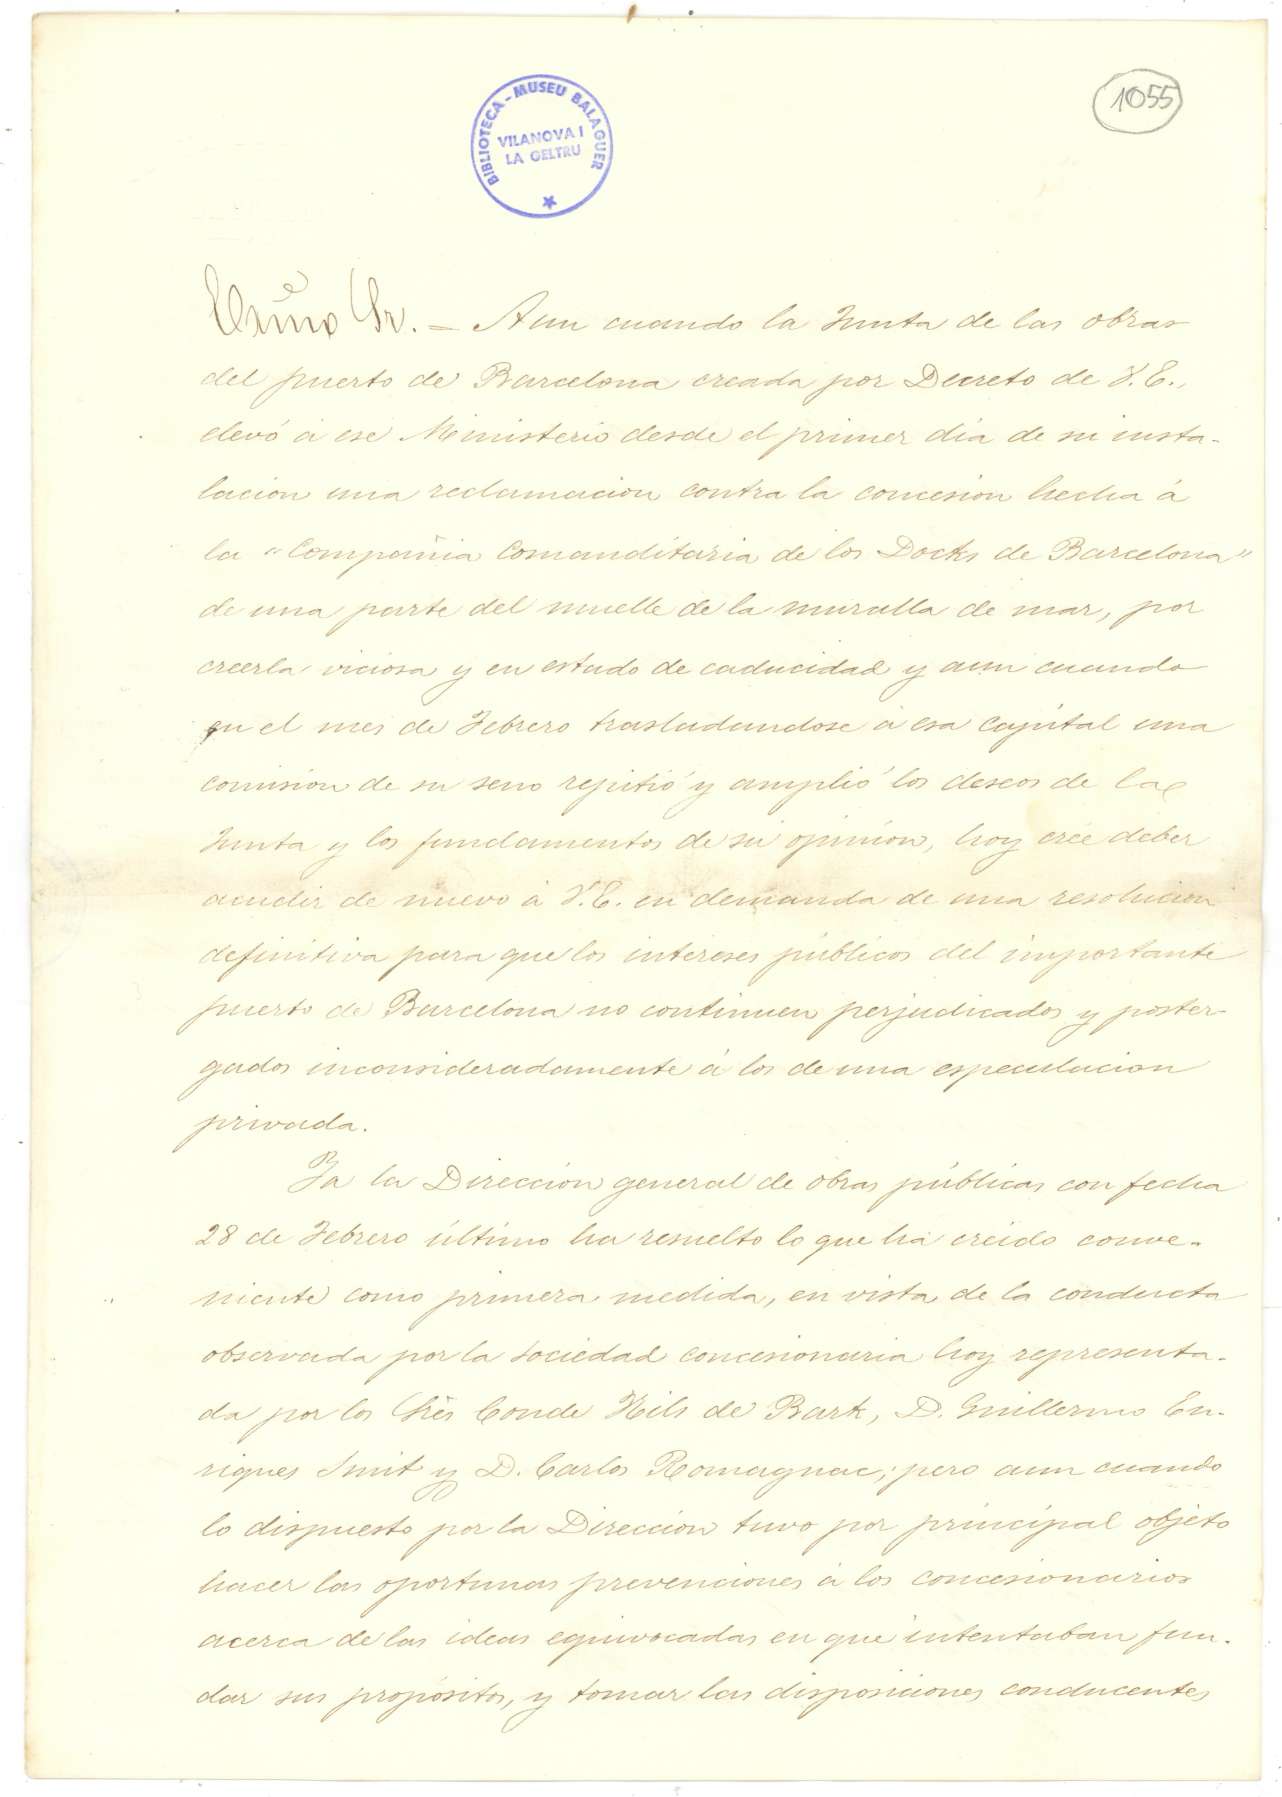 1055
BIBLIOTECA - MUSEU BALAGUER
VILANOVA I
LA GELTRU
Exmo Sr. = Aun cuando la Junta de las obras
del puerto de Barcelona creada por Decreto de V. E.,
elevó á ese Ministerio desde el primer dia de su insta-
lacion una reclamacion contra la concesion hecha á
la "Compañia Comanditaria de los Docks de Barcelona"
de una parte del muelle de la muralla de mar, por
creerla viciosa y en estado de caducidad y aun cuando
en el mes de Febrero trasladandose á esa capital una
comision de su seno repitió y amplió los deseos de la
Junta y los fundamentos de su opinion, hoy cree deber
acudir de nuevo á V. E. en demanda de una resolucion
definitiva para que los intereses públicos del importante
puerto de Barcelona no continuen perjudicados y poster-
gados inconsideradamente á los de una especulacion
privada.
Ya la Direccion general de obras públicas con fecha
28 de Febrero último ha resuelto lo que ha creido conve-
niente como primera medida, en vista de la conducta
observada por la sociedad concesionaria hoy representa-
da por los Sres Conde Nils de Bark, D. Guillermo En-
riques Smit y D. Carlos Romagnac; pero aun cuando
lo dispuesto por la Direccion tuvo por principal objeto
hacer las oportunas prevenciones á los concesionarios
acerca de las ideas equivocadas en que intentaban fun-
dar sus propósitos, y tomar las disposiciones conducentes